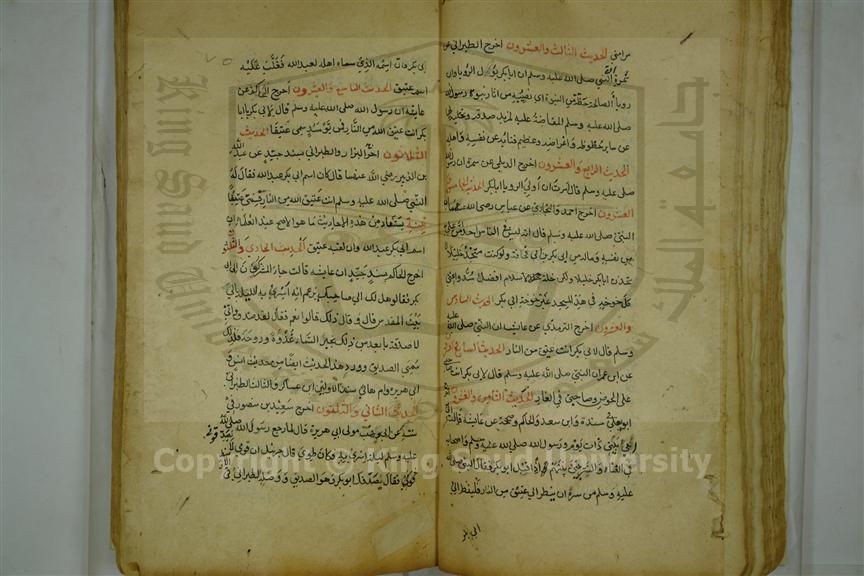 مرامتي الحديث الثالث والعشرون اخرج الطبراني عن
سمرة النبي صلى الله عليه وسلم ان ابا بكر يؤول الرويا وان
رويا الصالحة من النبوة اي نصيبه من اثار نبوة رسول الله
صلى الله عليه وسلم المفاضة عليه لمزيد صدقه وتخليه
عن ساير حظوظه واغراضه وعظيم فنائه عن نفسه واهله
الحديث الرابع والعشرون اخرج الديلمي عن سمرة ان رسول الله
صلى عليه وسلم قال امرت ان اولي الرويا ابا بكر الحديث الخامس
والعشرون اخرج احمد والبخاري عن ابن عباس رضي الله عنهما ان
النبي صلى الله عليه وسلم قال انه ليس في الناس احد امن علي
من نفسه وماله من ابي بكر بن ابي قحافة ولو كنت متخذا خليلا
لاتخذت ابا بكر خليلا ولكن خلة الاسلام افضل سدوا عني
كل خوخة في هذا المسجد غير خوخة ابي بكر الحديث السادس
والعشرون اخرج الترمذي عن عايشه ان النبي صلى الله عليه
وسلم قال لابي بكر انت عتيق من النار الحديث السابع والعشرون
عن ابن عمر ان النبي صلى الله عليه وسلم قال لابي بكر انت صاحبي
على الحوض وصاحبي في الغار الحديث الثامن والعشرون
ابو يعلى في مسنده وابن سعد والحاكم وصححه عن عايشة قالت اني
لفي بيتي ذات يوم ورسول الله صلى الله عليه وسلم واصحابه
في الفناء والستر بيني وبينهم اذ اقبل ابو بكر فقال النبي صلى الله
عليه وسلم من سره ان ينظر الى عتيق من النار فلينظر الى
ابي بكر
ابي بكر وان اسمه الذي سماه اهله لعبد الله فغلب عليه
اسم عتيق الحديث التاسع والعشرون اخرج الحاكم عن
عايشه ان رسول الله صلى الله عليه وسلم قال لابي بكر يا ابا
بكر انت عتيق الله من النار فمن يومئذ سمي عتيقا الحديث
الثلاثون اخرج البزار والطبراني بسند جيد عن عبد الله
بن الزبير رضي الله عنهما قال كان اسم ابي بكر عبد الله فقال له
النبي صلى الله عليه وسلم انت عتيق الله من النار فسمي عتيقا
تنبيه يستفاد من هذه الاحاديث ما هو الاصح عند العلماء ان
اسم ابي بكر عبد الله وان لقبه عتيق الحديث الحادي والثلاثون
اخرج الحاكم بسند جيد ان عايشه قالت جاء المشركون الى ابي
بكر فقالوا هل لك الى صاحبك يزعم انه اسري به الليلة الى
بيت المقدس قال وقال ذلك قالوا نعم فقال لقد صدق واني
لاصدقه بابعد من ذلك بخبر السماء غدوة وروحة فلذلك
سمي الصديق وورد هذا الحديث ايضا من حديث انس و
ابي هريرة وام هاني سند الاولين ابن عساكر والثالث الطبراني
الحديث الثاني والثلاثون اخرج سعيد بن منصور في
سننه عن ابي وهب مولى ابي هريرة قال لما رجع رسول الله صلى الله
عليه وسلم ليلة اسري به وكان بذي طوى قال جبريل ان قومي لا يصدقوني
فقال يصدقك ابو بكر وهو الصديق ووصله الطبراني في
جامعة الملك سعود
King Saud University
Copyright © King Saud University